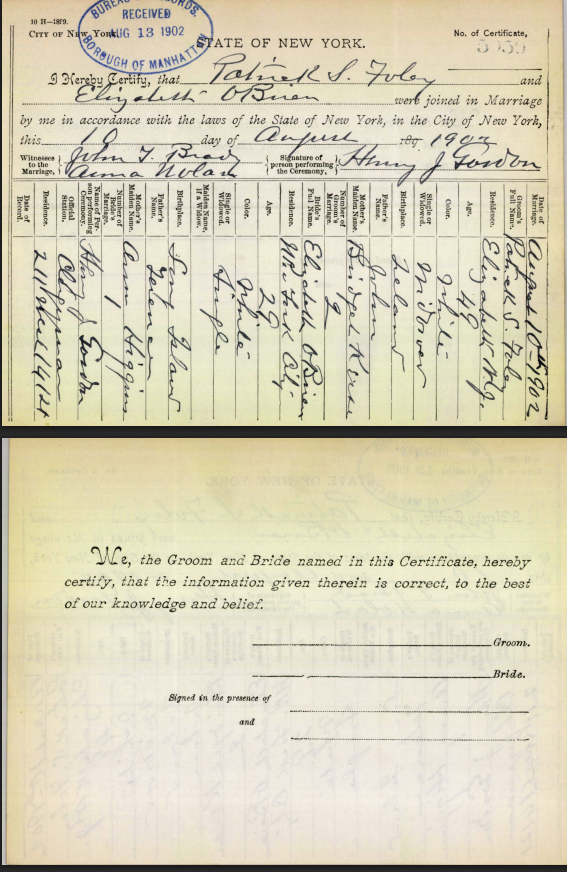 10 H—1899.
CITY OF NEW YORK.
BUREAU RECORDS.
RECEIVED
AUG 13 1902
BOROUGH OF MANHATTAN
STATE OF NEW YORK.
No. of Certificate,
I Hereby Certify, that Patrick S. Foley and
Elizabeth O'Brien were joined in Marriage
by me in accordance with the laws of the State of New York, in the City of New York,
this 10 day of August 189 1902
Witnesses to the Marriage, John T. Brady
Anna Nolan
Signature of person performing the Ceremony, Henry J Gordon
Date of Marriage. August 10th 1902
Groom's Full Name. Patrick S. Foley
Residence. Elizabeth N.J.
Age. 49
Color. White
Single or Widowed. Widower
Birthplace. Ireland
Father's Name. John
Mother's Maiden Name. Bridget
Number of Groom's Marriage. 2
Bride's Full Name. Elizabeth O'Brien
Residence. New York City
Age. 29
Color. White
Single or Widowed. Single
Maiden Name, if a Widow.
Birthplace. Long Island
Father's Name. Terence
Mother's Maiden Name. Ann Higgins
Number of Bride's Marriage. 1
Name of Person performing Ceremony. Henry J Gordon
Official Station. Clergyman
Residence. 211 West 141 St
Date of Record.
We, the Groom and Bride named in this Certificate, hereby
certify, that the information given therein is correct, to the best
of our knowledge and belief.
Groom.
Bride.
Signed in the presence of
and